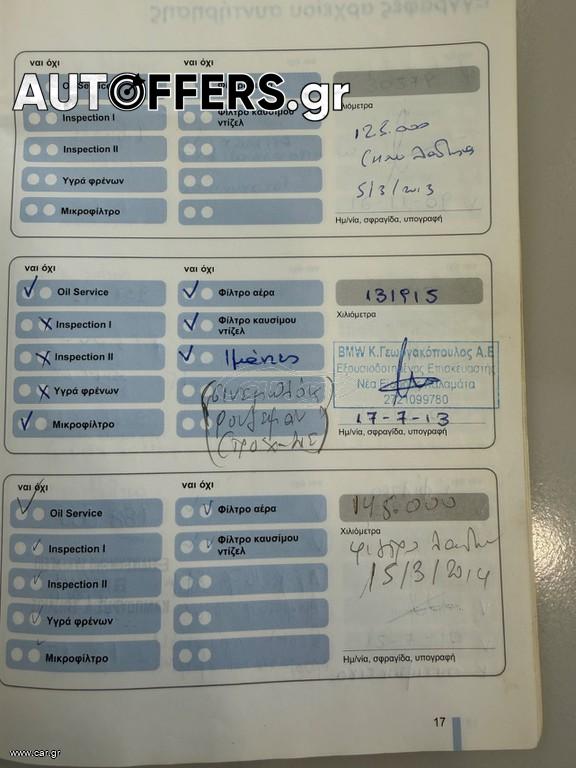 ναι όχι
ναι όχι
AUTOFFERS.gr
Oil Service
Inspection I
Φίλτρο καυσίμου
ντίζελ
Inspection II
Υγρά φρένων
Μικροφίλτρο
Χιλιόμετρα
123.000
5/3/2013
Ημ/νία, σφραγίδα, υπογραφή
ναι όχι
ναι όχι
Oil Service
Φίλτρο αέρα
Inspection I
Φίλτρο καυσίμου
ντίζελ
Inspection II
Ιμάντες
Υγρά φρένων
Μικροφίλτρο
131915
Χιλιόμετρα
BMW Κ.Γεωργακόπουλος Α.Ε
Εξουσιοδοτημένος Επισκευαστής
Νέα Καλαμάτα
2721099780
17-7-13
Ημ/νία, σφραγίδα, υπογραφή
ναι όχι
ναι όχι
Oil Service
Φίλτρο αέρα
Inspection I
Φίλτρο καυσίμου
ντίζελ
Inspection II
Υγρά φρένων
Μικροφίλτρο
145.000
Χιλιόμετρα
15/3/2014
Ημ/νία, σφραγίδα, υπογραφή
17
www.car.gr